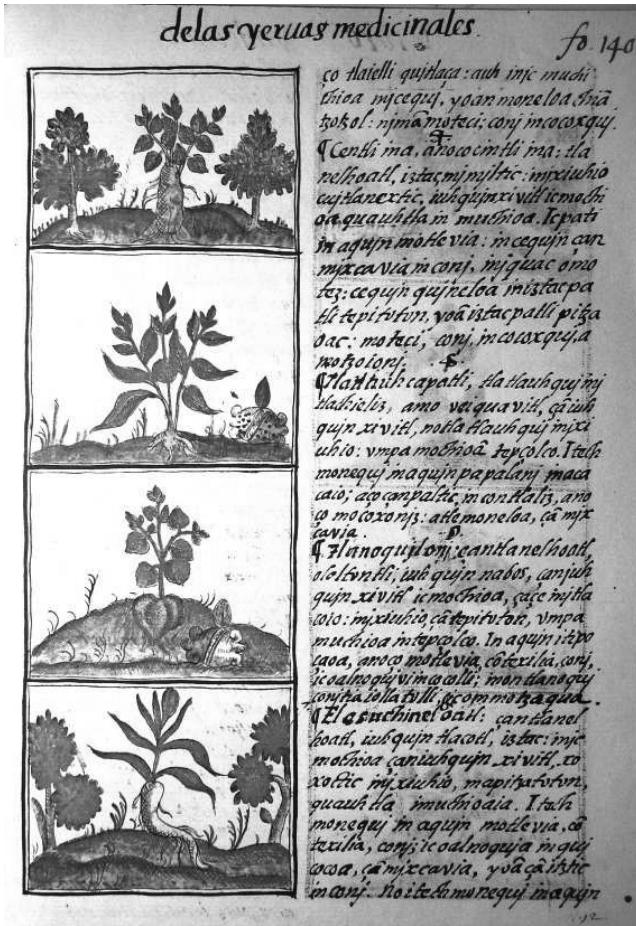 delas yeruas medicinales.
fo. 140
ço tlaielli quitlaça: auh injc muchi
thioa njcequj, yoan moneloa chiã
tzotzol: njmã moteci; conj in cocoxquj.
¶ Centli ina, anoço cintli ina: tla
nelhoatl, iztac mjmjltic: injxiuhio
cujtlanextic, iuhqujn xivitl ic mochi
oa quauhtla in muchioa. Ic pati
in aqujn motlevia: in cequjn çan
mixcavia in conj, injquac omo
tez: cequjn qujneloa in iztac pa
tli tepitvtvn, yoã iztac patli pitza
oac: moteci, conj, in cocoxquj, a
motzoionj.
¶ Tlatlauhcapatli, tlatlauhquj inj
tlachieliz, amo vei quavitl, çã iuh
qujn xivitl, no tlatlauhquj injxi
uhio: vmpa mochioã tepçolco. Itech
monequj in aqujn papalanj inaca
caio; aço çan paltic, in contlaliz, ano
ço mocoxonjz: atle moneloa, çã mix
cavia.
¶ Tlanoqujlonj: çan tlanelhoatl,
ololtvntli, iuhqujn nabos, çan iuh
qujn xivitl ic mochioa, çã çe injtla
coio: injxiuhio, çã tepitvton, vmpa
muchioa in tepçolco. In aqujn itipo
caoa, anoço motlevia, cõtexilia, conj,
ic oalnoqujvi in cocolli: in ontlanoquj
conjtzaiollatvlli, ic commotzaqua.
¶ Eloxuchinelhoatl: çan tlanel
hoatl, iuhqujn tlacotl, iztac: injc
mochioa çan iuhqujn xivitl, xo
xoctic injxiuhio, mapitzavtvtvn,
quauhtla in muchioaia. Itech
monequj in aqujn motlevia, cõ
texilia, conj; ic oalnoquja in quj
cocoa, çã mixcavia, yoã çã itztic
in conj. No itech monequj in aqujn